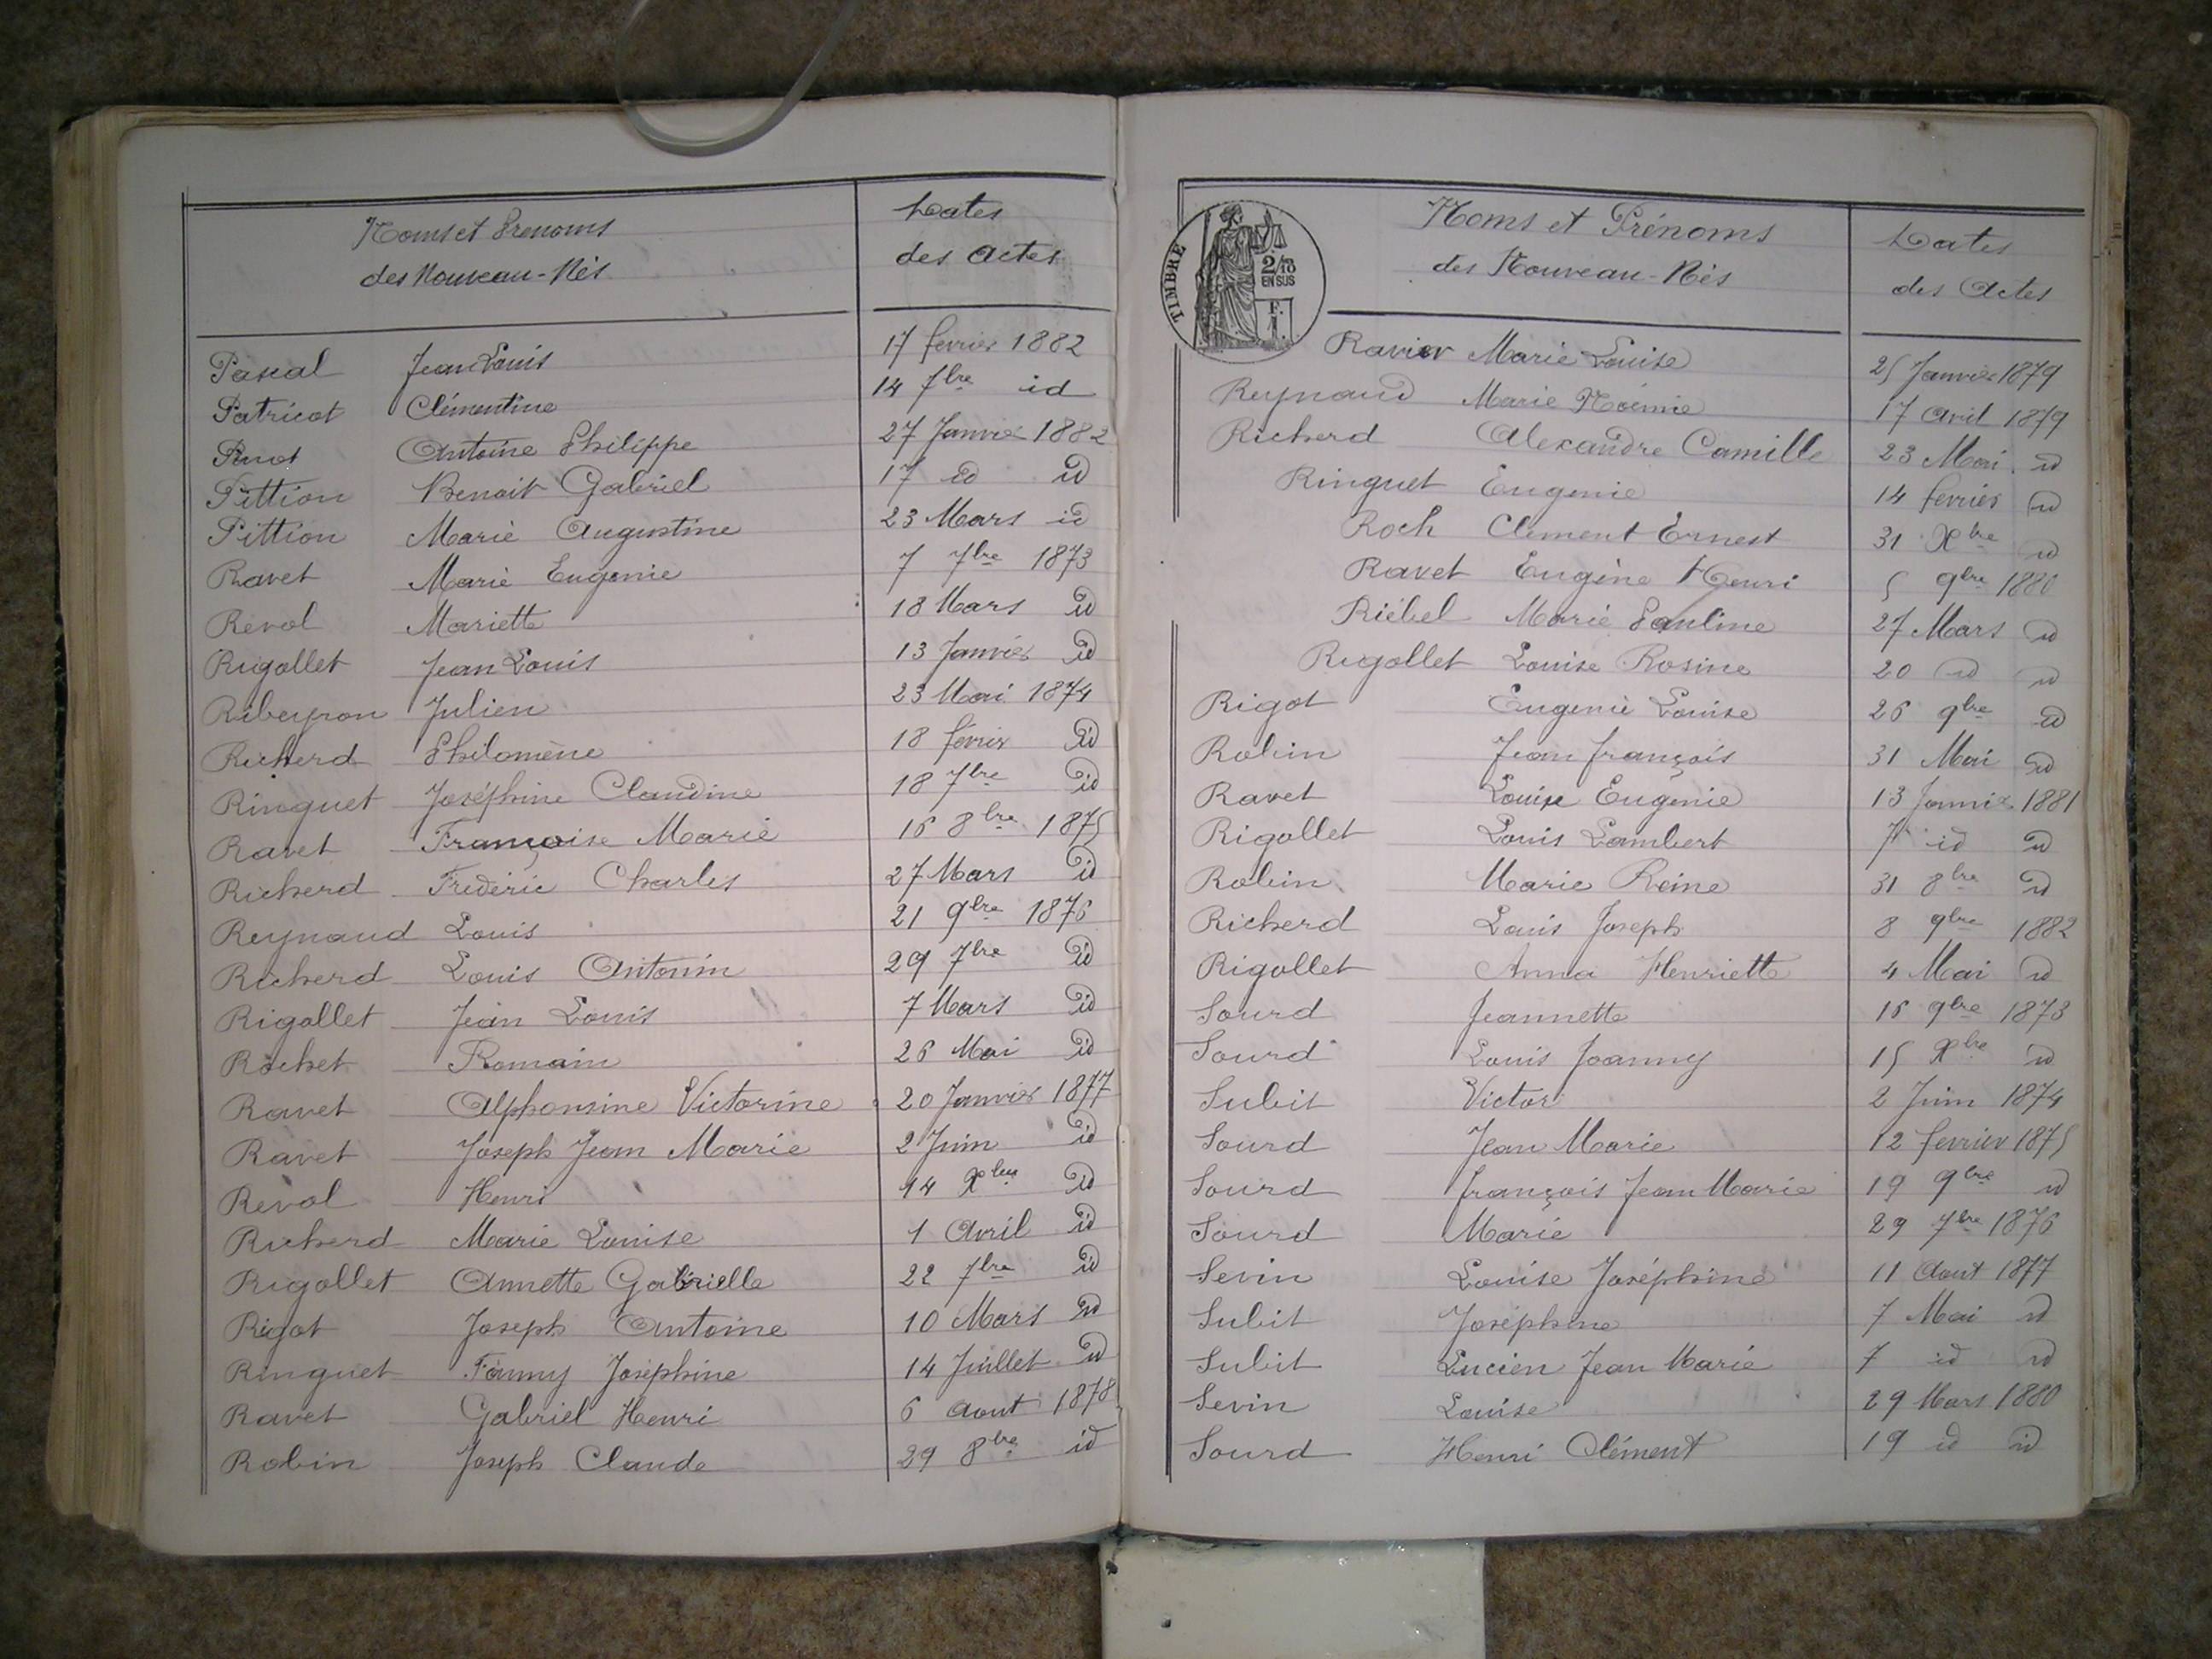 Noms et Prenoms
des Nouveau-Nés
Dates
des Actes
Pascal Jean Louis 17 fevrier 1882
Patricot Clémentine 14 7bre id
Pinot Antoine Philippe 27 Janvier 1882
Pittion Benoit Gabriel 17 id id
Pittion Marie Augustine 23 Mars id
Ravet Marie Eugenie 7 7bre 1873
Revol Mariette 18 Mars id
Rigollet Jean Louis 13 Janvier id
Ribeyron Julien 23 Mai 1874
Richerd Philomène 18 fevrier id
Ringuet Joséphine Claudine 18 7bre id
Ravet Françoise Marie 16 8bre 1875
Richerd Frederic Charles 27 Mars id
Reynaud Louis 21 9bre 1876
Richerd Louis Antonin 29 7bre id
Rigollet Jean Louis 7 Mars id
Rochet Romain 26 Mai id
Ravet Alphonsine Victorine 20 Janvier 1877
Ravet Joseph Jean Marie 2 Juin id
Revol Henri 14 Xbre id
Richerd Marie Louise 1 Avril id
Rigollet Annette Gabrielle 22 7bre id
Rigot Joseph Antoine 10 Mars id
Ringuet Fanny Joséphine 14 Juillet id
Ravet Gabriel Henri 6 Aout 1878
Robin Joseph Claude 29 8bre id
TIMBRE
2/10
EN SUS
F.
1.
Noms et Prénoms
des Nouveau-Nés
Dates
des Actes
Ravier Marie Louise 25 Janvier 1879
Reynaud Marie Noémie 17 Avril 1879
Richerd Alexandre Camille 23 Mai id
Ringuet Eugenie 14 fevrier id
Roch Clement Ernest 31 Xbre id
Ravet Eugène Henri 5 9bre 1880
Riébel Marie Pauline 27 Mars id
Rigollet Louise Rosine 20 id id
Rigot Eugenie Louise 26 9bre id
Robin Jean françois 31 Mai id
Ravet Louise Eugenie 13 Janvier 1881
Rigollet Louis Lambert 7 id id
Robin Marie Reine 31 8bre id
Richerd Louis Joseph 8 9bre 1882
Rigollet Anna Henriette 4 Mai id
Sourd Jeannette 16 9bre 1873
Sourd Louis Joanny 15 Xbre id
Subit Victor 2 Juin 1874
Sourd Jean Marie 12 fevrier 1875
Sourd françois Jean Marie 19 9bre id
Sourd Marie 29 7bre 1876
Sevin Louise Joséphine 11 Aout 1877
Subit Joséphine 7 Mai id
Subit Lucien Jean Marie 7 id id
Sevin Louise 29 Mars 1880
Sourd Henri Clément 19 id id